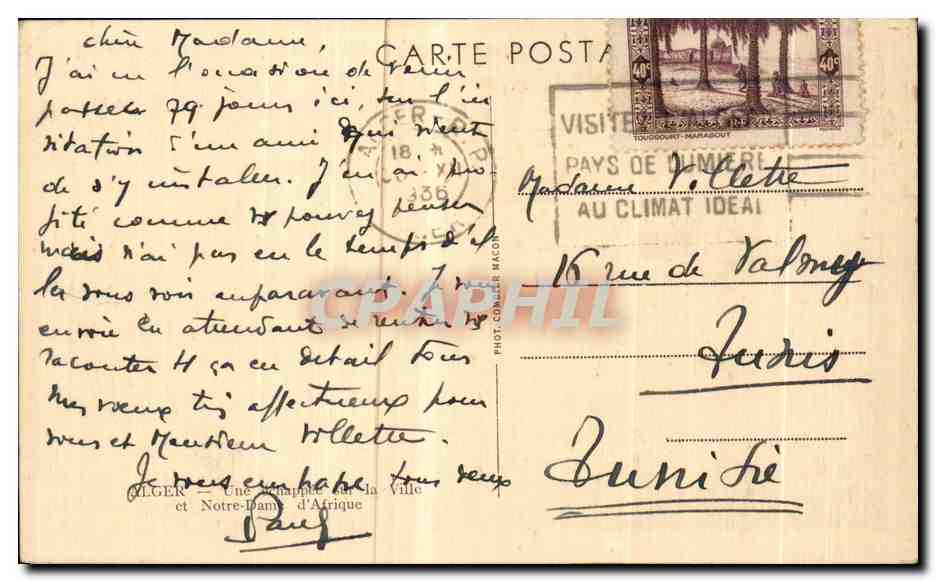 chère Madame,
J'ai eu l'occasion de venir
passer qq. jours ici, sur l'in
vitation d'un ami qui vient
de s'y installer. J'en ai pro-
fité comme vs pouvez penser
mais n'ai pas eu le temps d'al
ler vous voir auparavant. Je vous
envoie en attendant de rentrer vs
raconter tt ça en détail tous
mes vœux très affectueux pour
vous et Monsieur Villette.
Je vous embrasse tous deux
Paul
ALGER — Une échappée sur la Ville
et Notre-Dame d'Afrique
CARTE POSTA
ALGER R.P.
18 H
XII
1936
ALGER
VISITE
PAYS DE LUMIERE
AU CLIMAT IDEAL
40c 40c
TOUGGOURT-MARABOUT
RF
PHOT. COMBIER MACON
Madame Villette
16 rue de
Tunis
Tunisie
CPAPHIL